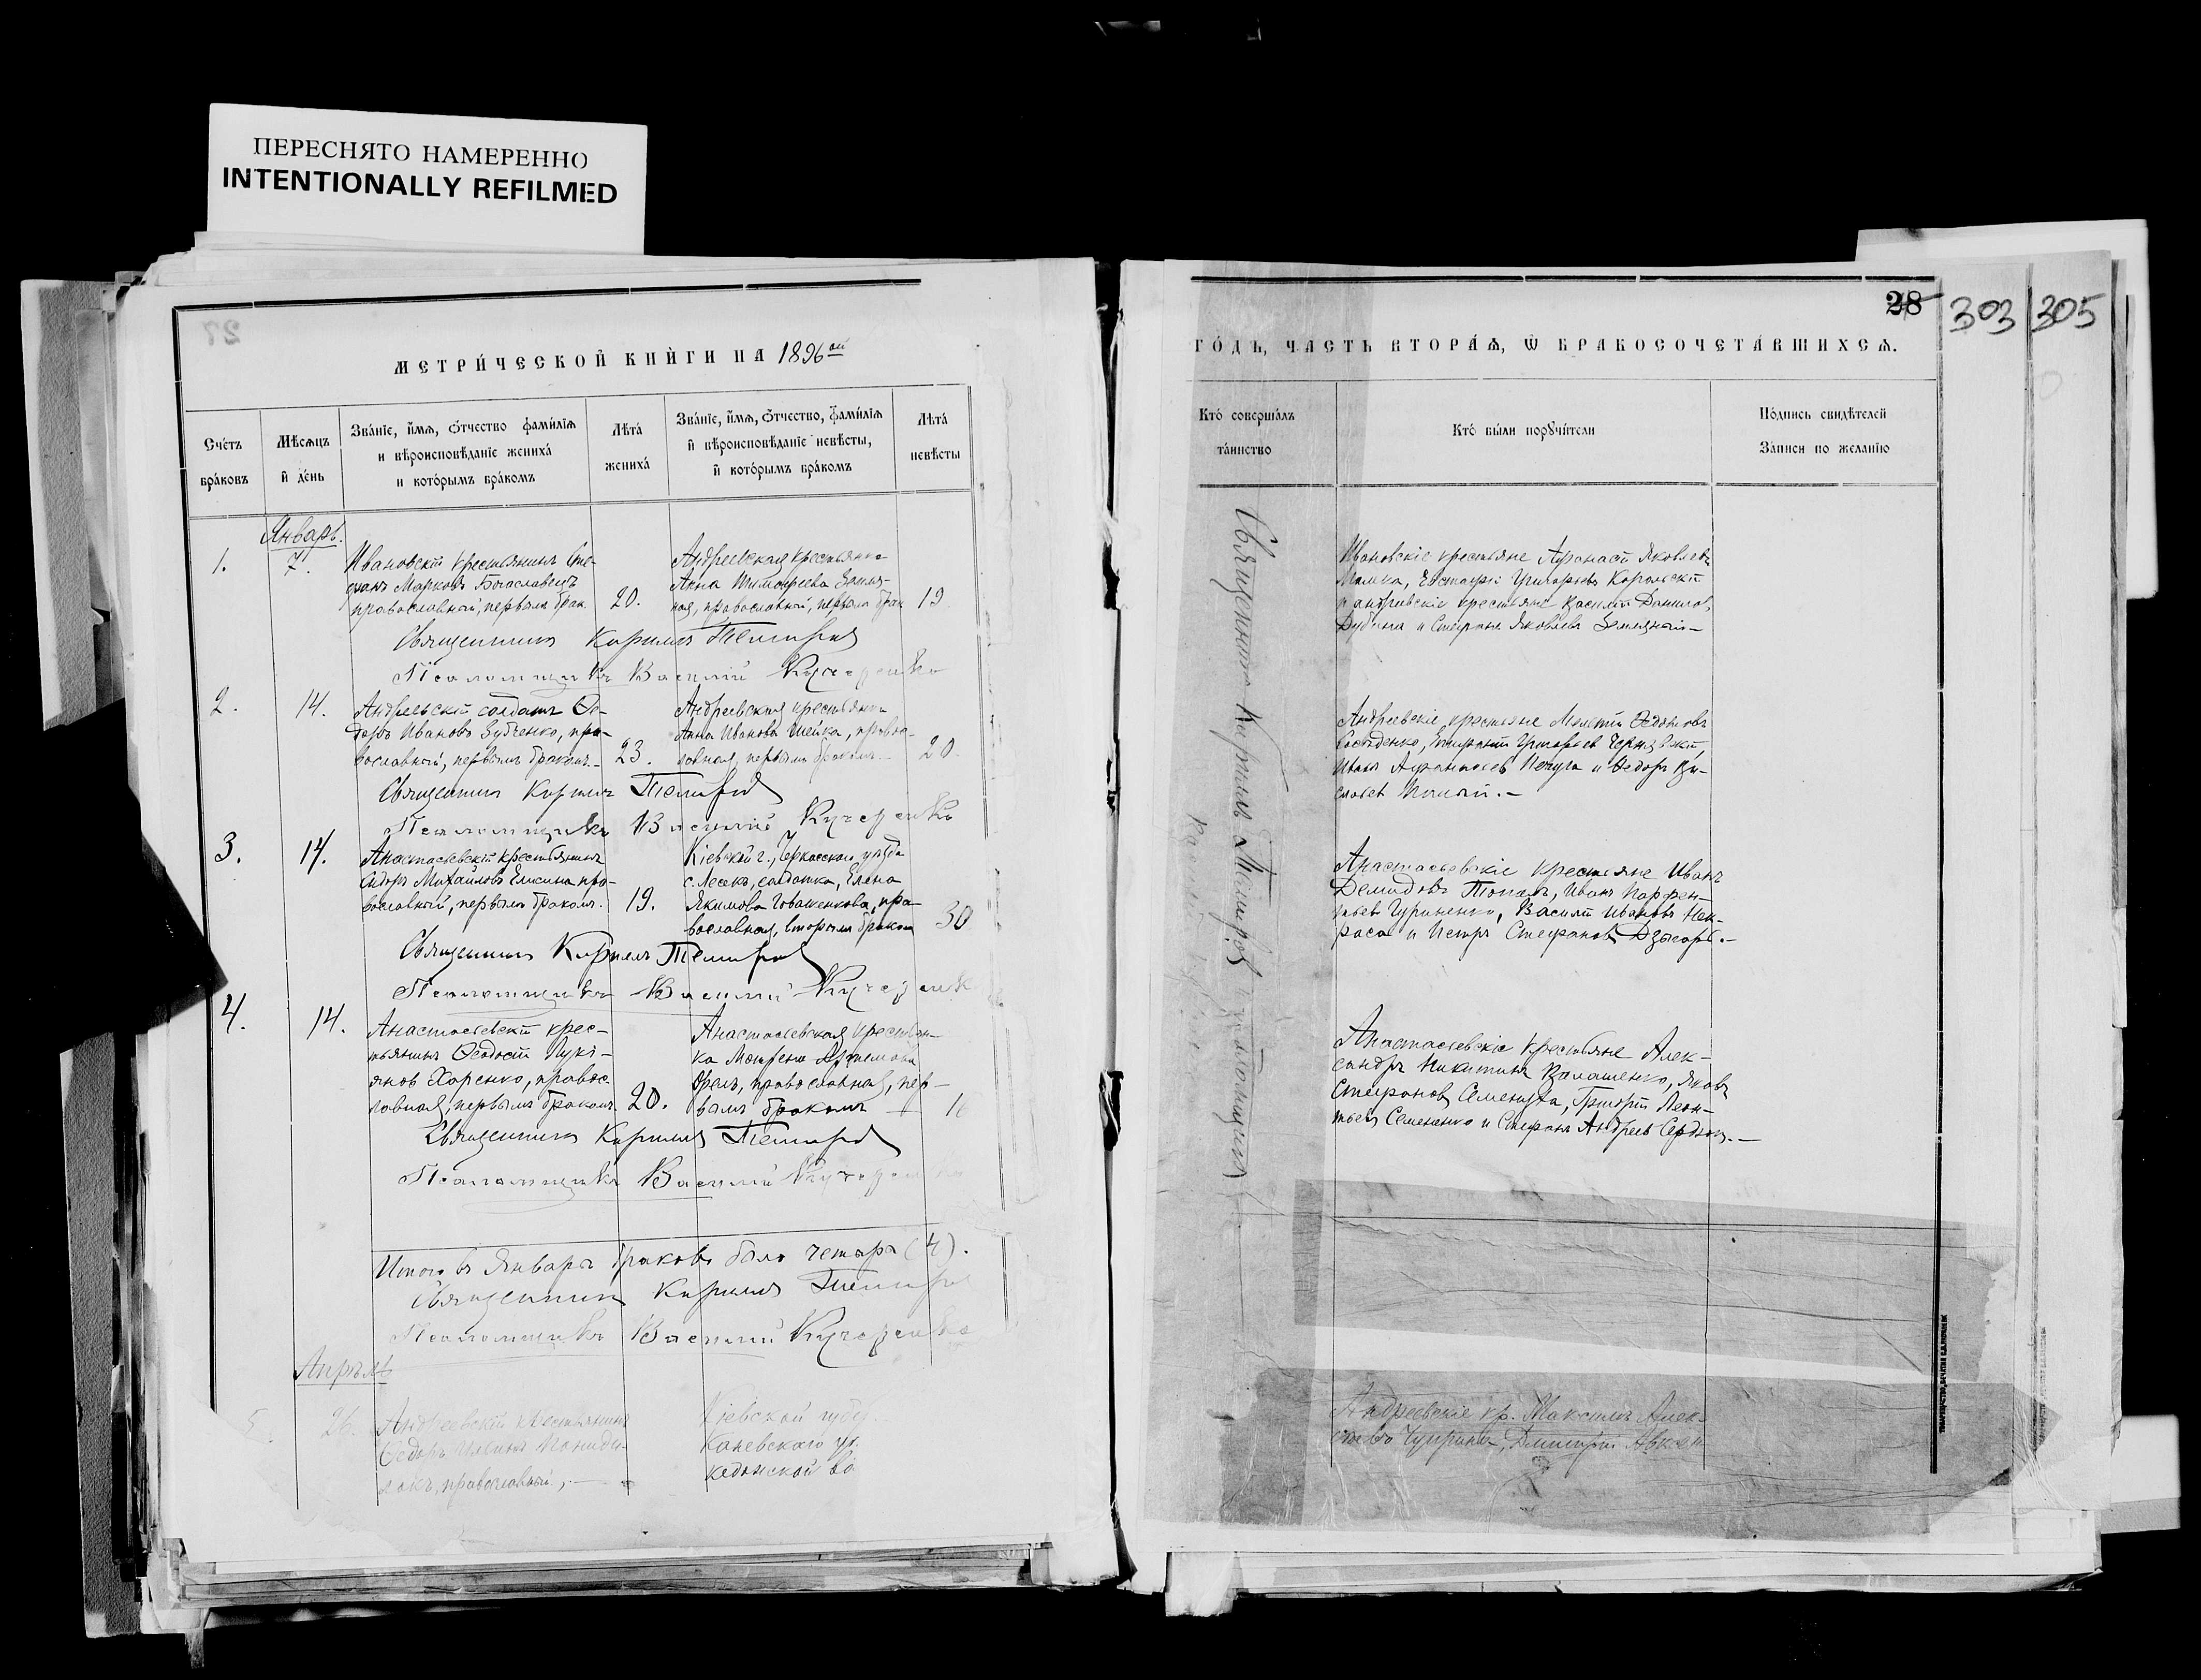 ПЕРЕСНЯТО НАМЕРЕННО
INTENTIONALLY REFILMED
27
МЕТРИ́ЧЕСКОЙ КНИ̑ГИ НА 1896 ой
Сче́тъ бра́ковъ
Мѣ́сѧцъ и҆ де́нь
Зва́нїе, и҆́мѧ, ѻ҆́тчество фами́лїѧ
и вѣроисповѣ́данїе жениха́
и кото́рымъ бра́комъ
Лѣта́ жениха́
Зва́нїе, и҆́мѧ, ѻ҆́тчество, фами́лїѧ
и҆ вѣроисповѣ́данїе невѣ́сты,
и҆ кото́рымъ бра́комъ
Лѣта́ невѣ́сты
Январь.
1.
7.
Ивановскій крестьянинъ Сте-
фанъ Марковъ Богославецъ
православный, первымъ брак.
20.
Андреевская крестьянка
Анна Тимофеева Земля-
ная, православный, первымъ брак
19
Священникъ Кириллъ Темиров
Псаломщикъ Василий Кучеренко
2.
14.
Андреевскій солдатъ Ѳе-
доръ Ивановъ Зубченко, пра-
вославный, первымъ бракомъ.
23.
Андреевская крестьянка
Анна Иванова Шейка, правос-
лавная, первымъ бракомъ.
20.
Священникъ Кириллъ Темиров
Псаломщикъ Василий Кучеренко
3.
14.
Анастасьевскій крестьянинъ
Сидоръ Михайловъ Елисина пра-
вославный, первымъ бракомъ.
19.
Кіевской г., Черкасскаго уѣзда
с. Лесекъ, солдатка, Елена
Якимова, пра-
вославная, вторымъ бракомъ
30
Священникъ Кириллъ Темиров
Псаломщикъ Василий Кучеренк
4.
14.
Анастасьевскій крес-
тьянинъ Ѳеодосій Лукі-
яновъ Харенко, правос-
лавный, первымъ бракомъ
20.
Анастасьевская крестьян-
ка Мотрена Артемова
Орелъ, православная, пер-
вымъ бракомъ
Священникъ Кириллъ Темиров
Псаломщикъ Василий Кучерен
Итого въ Январѣ браковъ было четыре (4).
Священникъ Кириллъ Темиров
Псаломщикъ Василий Кучеренко
Апрѣль
5.
26.
Андреевскій крестьянинъ
Ѳедоръ Ильинъ Понеди-
локъ, православный,
Кіевской губ.
Каневского у.
28
303
305
ГО́ДЪ, ЧА́СТЬ ВТОРА́Ѧ, Ѡ҆ БРАКОСОЧЕТА́ВШИХСѦ.
Кто́ соверша́лъ та́инство
Кто́ бы́ли порꙋчи́тели
По́дпись свидѣ́телей
За́писи по жела́нїю
Священникъ Кириллъ Темиров
Ивановскіе крестьяне Афанасій Яковлевъ
Малка, Евстафій Григорьевъ Корольскій
и андреевскіе крестьяне Василий Данилов
Дубина и Стефанъ Яковлевъ Земляный
Андреевскіе крестьяне Мелетій
Григорьев
Иванъ Афанасьев и Ѳедоръ Ва-
сильев
Анастасьевскіе крестьяне Иванъ
Демидовъ Топалъ, Иванъ Парфен-
тьевъ Гуриненко, Василій Ивановъ Нек-
раса и Петръ Стефановъ
Анастасьевскіе крестьяне Алек-
сандръ Никитинъ Валашенко, Яковъ
Стефановъ Семенюта, Григорій Леон-
тьевъ Семененко и Стефанъ Андреевъ Сердюкъ.
Андреевскіе кр. Максимъ Алек-
Чуприна, Дмитрій